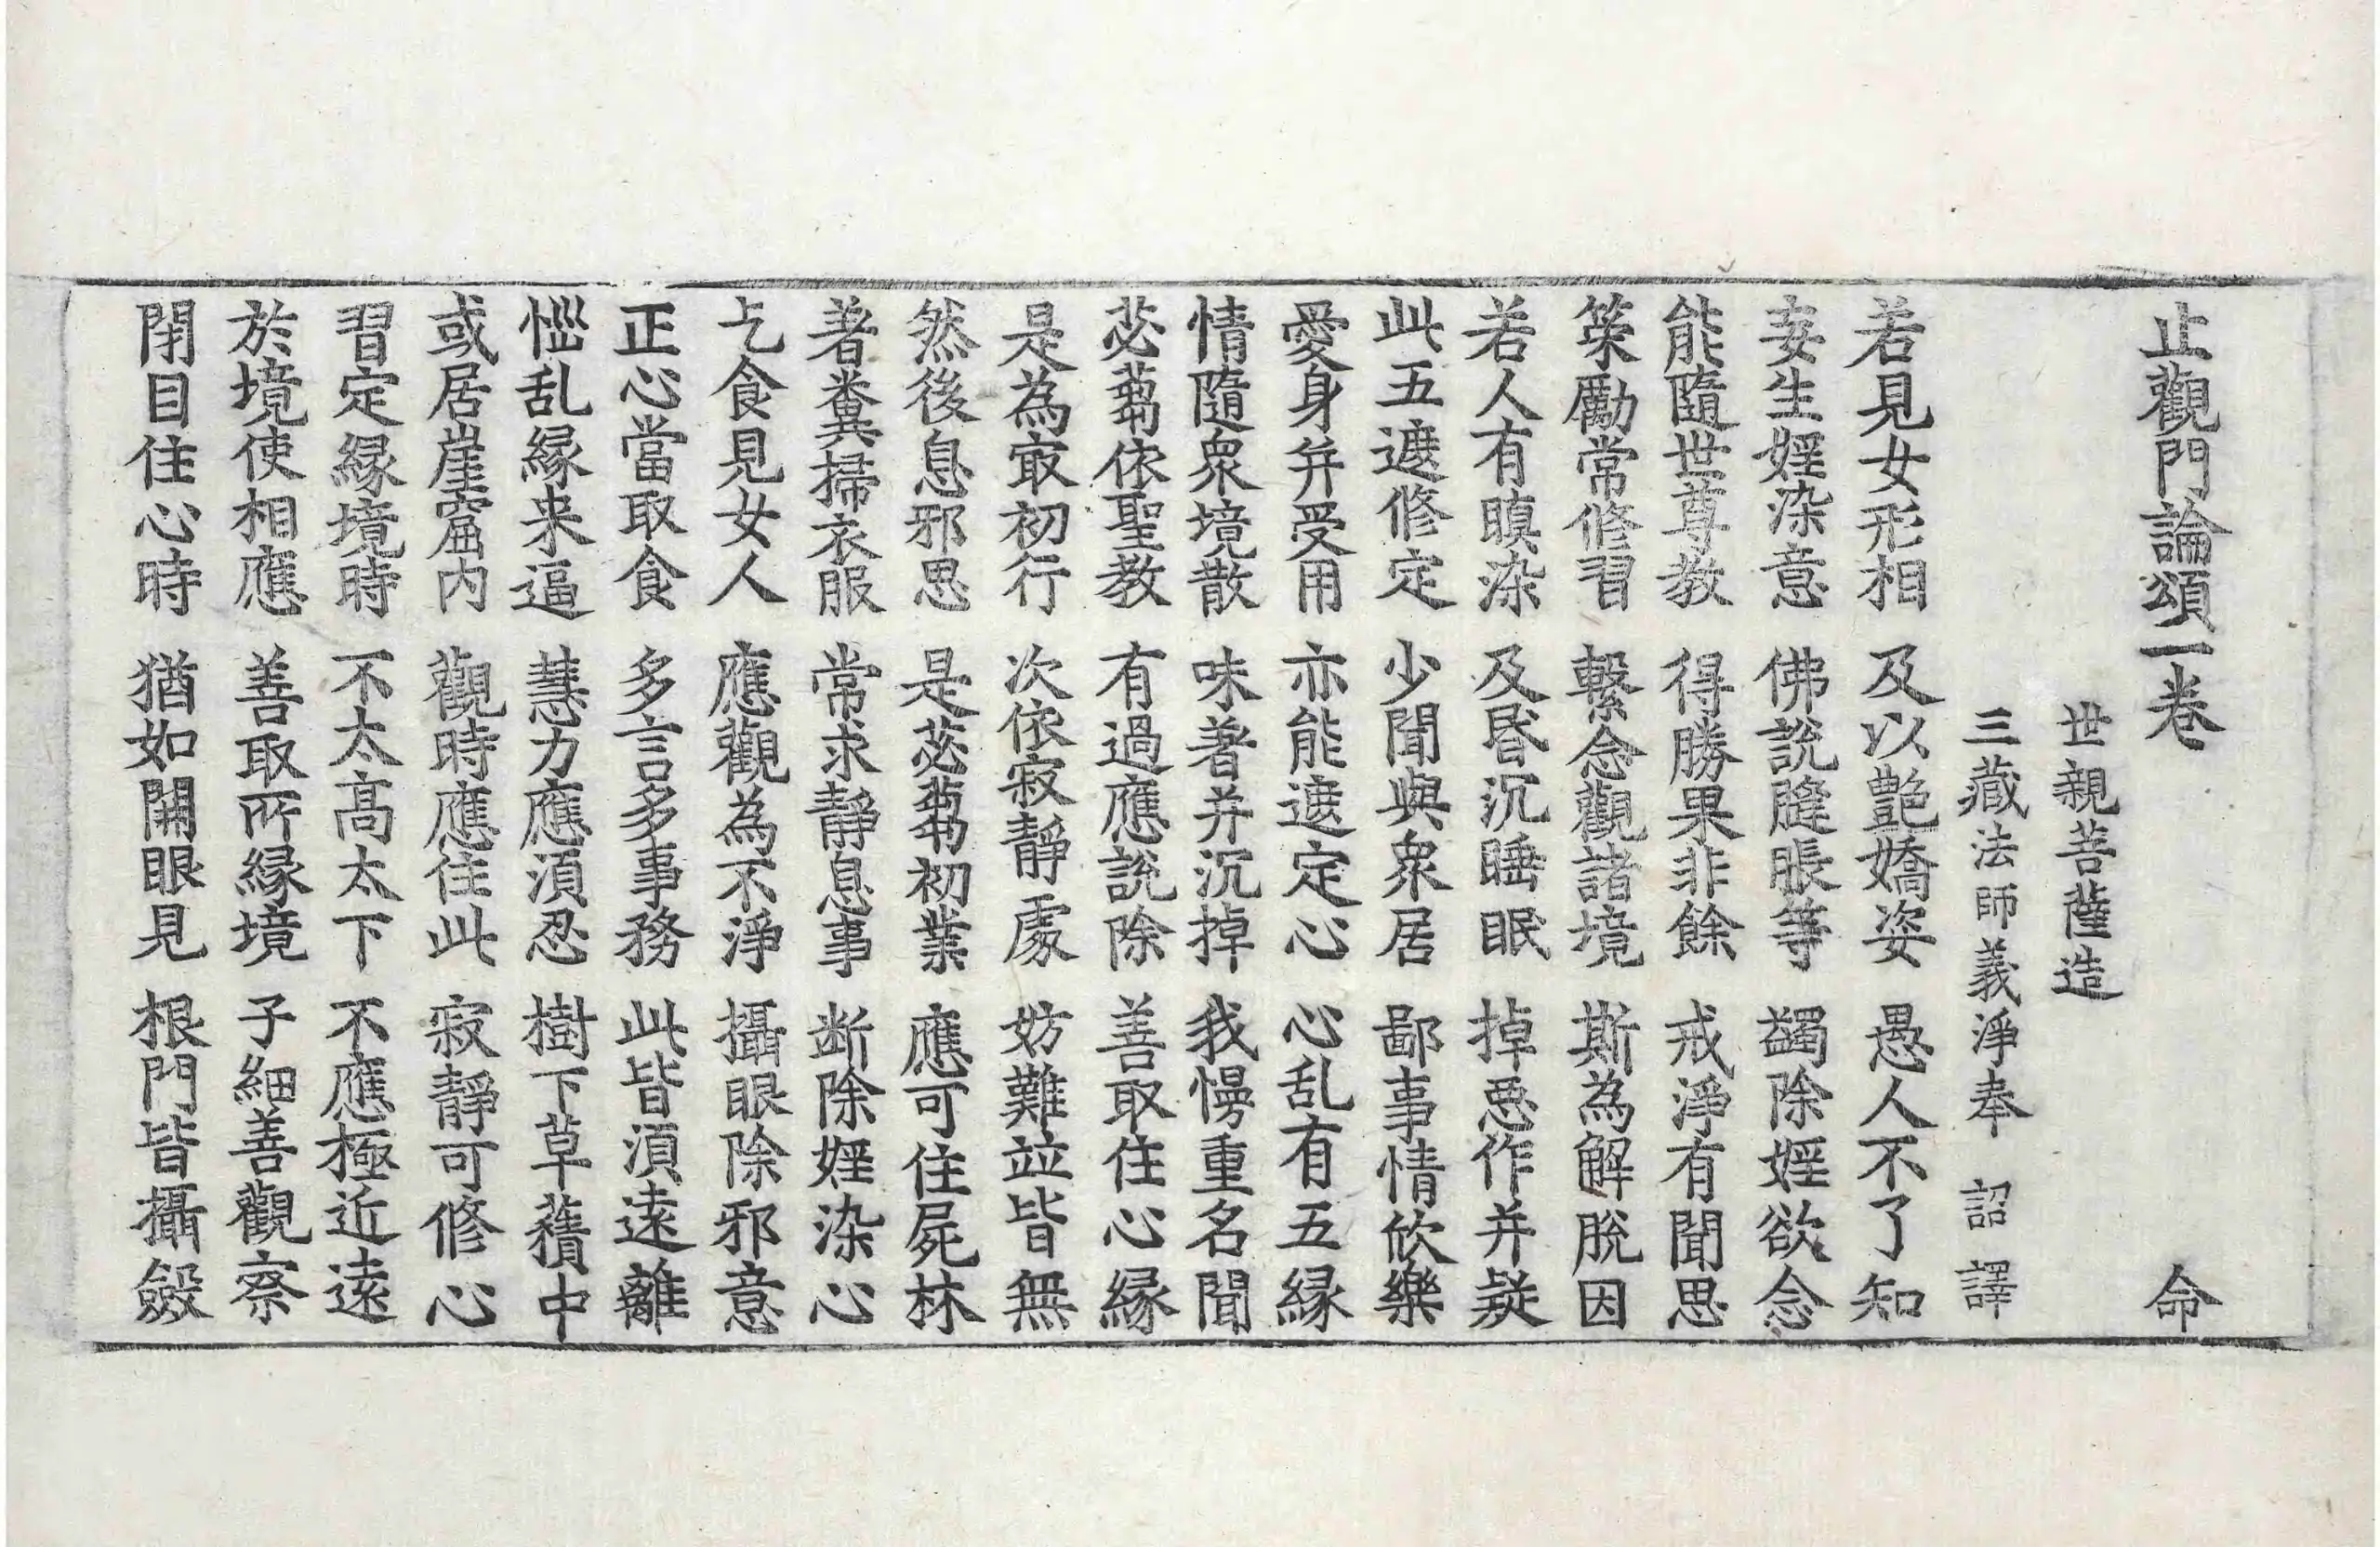 止觀門論頌一卷 命
世親菩薩造
三藏法師義淨奉 詔 譯
若見女形相 及以艷嬌姿 愚人不了知
妄生婬染意 佛說膖脹等 蠲除婬欲念
能隨世尊教 得勝果非餘 戒淨有聞思
策勵常修習 繫念觀諸境 斯為解脫因
若人有瞋染 及昏沉睡眠 掉惡作并疑
此五遮修定 少聞與衆居 鄙事情欣樂
愛身并受用 亦能遮定心 心乱有五緣
情隨衆境散 味著并沉掉 我慢重名聞
苾蒭依聖教 有過應說除 善取住心緣
是為㝡初行 次依寂靜處 妨難竝皆無
然後息邪思 是苾蒭初業 應可住屍林
著糞掃衣服 常求靜息事 断除婬染心
乞食見女人 應觀為不淨 攝眼除邪意
正心當取食 多言多事務 此皆須遠離
惱乱緣来逼 慧力應須忍 樹下草䕆中
或居崖窟內 觀時應住此 寂靜可修心
習定緣境時 不太高太下 不應極近遠
於境使相應 善取所緣境 子細善觀察
閇目住心時 猶如開眼見 根門皆攝斂